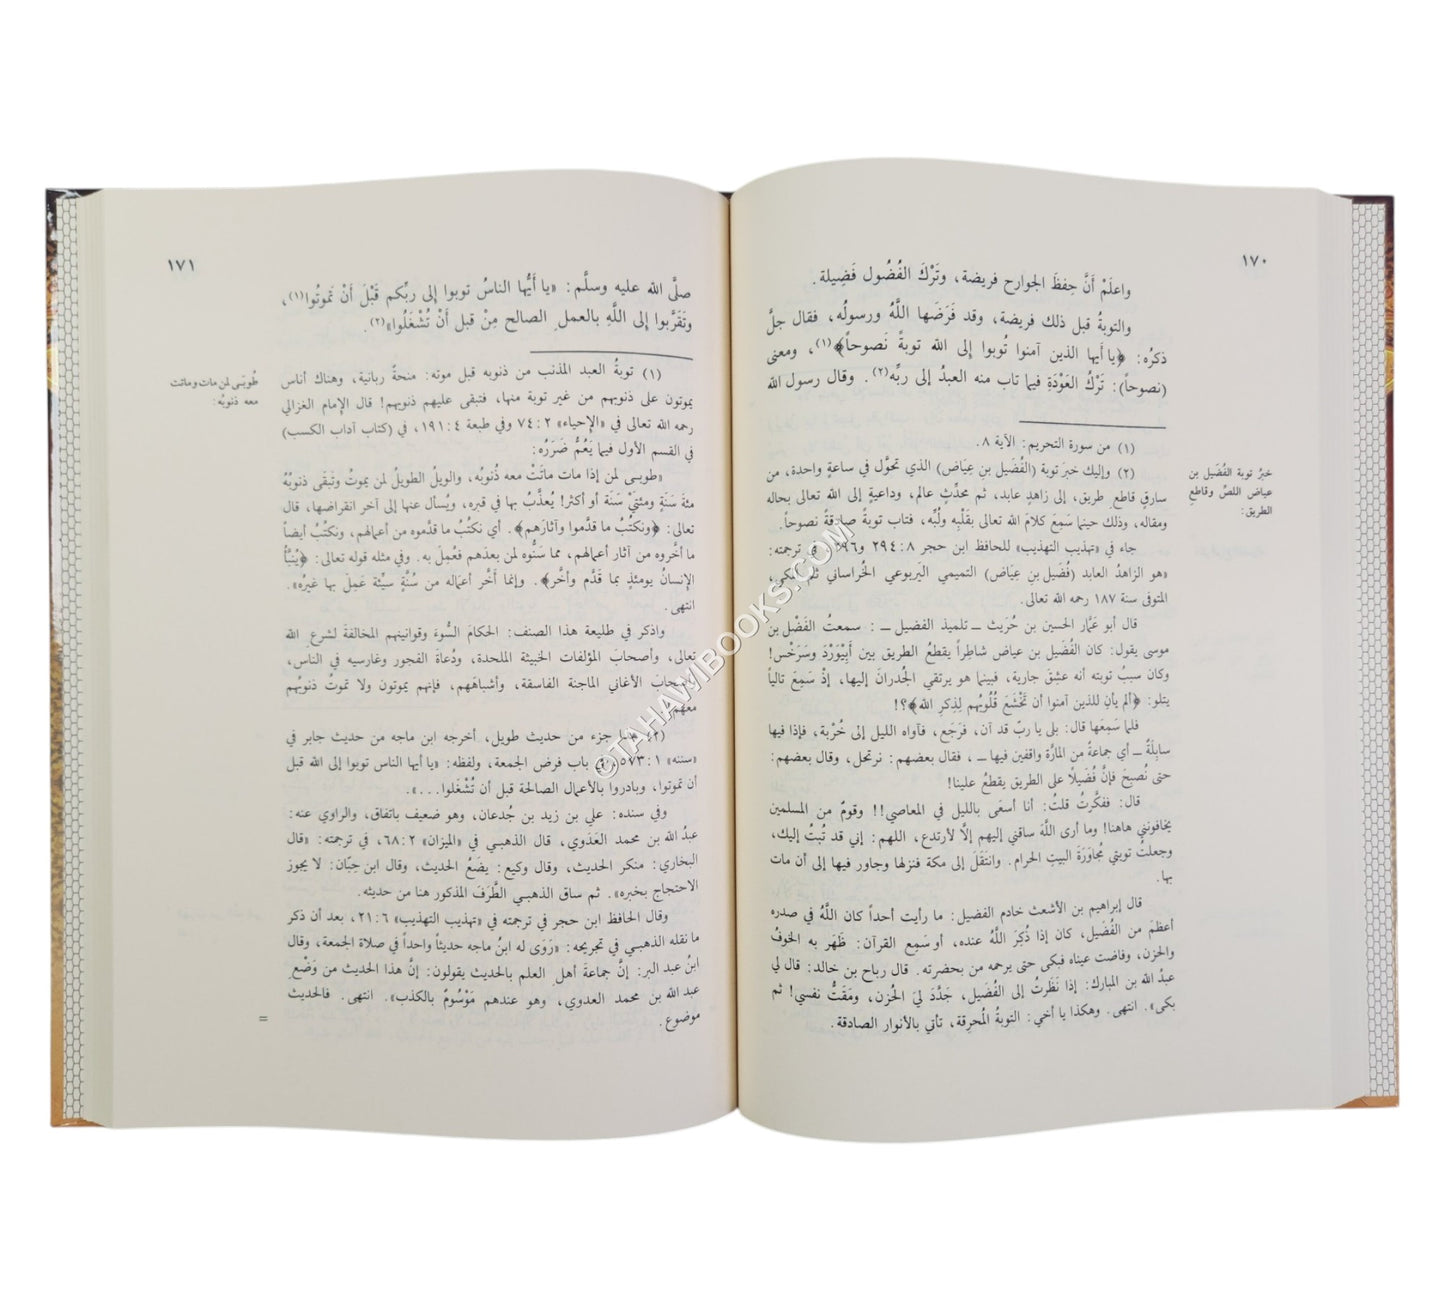 ١٧٠
واعلَمْ أنَّ حِفظَ الجوارح فريضة، وتَرْكَ الفُضُول فَضِيلة.
والتوبةُ قبل ذلك فريضة، وقد فَرَضَها اللَّهُ ورسولُه، فقال جلَّ
ذكرُه: ﴿يا أيها الذين آمنوا تُوبوا إلى الله توبةً نَصوحاً﴾(١)، ومعنى
(نصوحاً): تَرْكُ العَوْدَةِ فيما تاب منه العبدُ إلى ربِّه(٢). وقال رسول الله
(١) من سورة التحريم: الآية ٨.
خبرُ توبة الفُضَيل بن
عياض اللصِّ وقاطع
الطريق:
(٢) وإليك خبرَ توبة (الفُضَيل بنِ عِيَاض) الذي تحوَّل في ساعةٍ واحدة، من
سارقٍ قاطعِ طريق، إلى زاهدٍ عابد، ثم محدِّثٍ عالم، وداعيةٍ إلى الله تعالى بحاله
ومقاله، وذلك حينما سَمِعَ كلامَ الله تعالى بقَلْبِه ولُبِّه، فتاب توبةً صادقةً نصوحاً.
جاء في «تهذيب التهذيب» للحافظ ابن حجر ٨:٢٩٤ في ترجمته:
«هو الزاهدُ العابد (فُضَيل بن عِيَاض) التميمي اليَربوعي الخُراساني ثم المكي،
المتوفى سنة ١٨٧ رحمه الله تعالى.
قال أبو عمَّار الحسين بن حُرَيث ــ تلميذ الفضيل ــ: سمعتُ الفَضْل بن
موسى يقول: كان الفُضَيل بن عياض شاطِراً يقطعُ الطريق بين أَبِيْوَرْدَ وسَرَخْس!
وكان سببُ توبته أنه عشِقَ جارية، فبينما هو يرتقي الجُدرانَ إليها، إذْ سَمِعَ تالياً
يتلو: ﴿ألم يأنِ للذين آمنوا أن تَخْشَعَ قُلُوبُهم لِذِكرِ الله﴾؟!
فلما سَمِعَها قال: بلى يا ربّ قد آن، فرَجَع، فآواه الليل إلى خُرْبة، فإذا فيها
سابِلَةٌ ــ أي جماعةٌ من المارَّة واقفين فيها ــ، فقال بعضهم: نرتحل، وقال بعضهم:
حتى نُصبِحَ فإنَّ فُضَيلًا على الطريق يقطعُ علينا!
قال: ففكَّرتُ قلتُ: أنا أسعَى بالليل في المعاصي!! وقومٌ من المسلمين
يخافونني هاهنا! وما أرى اللَّهَ ساقني إليهم إلَّا لأرتدع، اللهم: إني قد تُبتُ إليك،
وجعلتُ توبتي مُجاوَرَةَ البيتِ الحرام. وانتَقَلَ إلى مكة فنزلها وجاور فيها إلى أن مات
بها.
قال إبراهيم بن الأشعث خادم الفضيل: ما رأيت أحداً كان اللَّهُ في صدره
أعظمَ من الفُضَيل، كان إذا ذُكِرَ اللَّهُ عنده، أو سَمِع القرآن: ظَهَر به الخوفُ
والحزن، وفاضت عيناه فبكى حتى يرحمه من بحضرته. قال رباح بن خالد: قال لي
عبدُ الله بن المبارك: إذا نَظَرتُ إلى الفُضَيل، جَدَّدَ ليَ الحُزن، ومَقَتُّ نفسي! ثم
بكى». انتهى. وهكذا يا أخي: التوبةُ المُحرِقة، تأتي بالأنوار الصادقة.
١٧١
صلَّى الله عليه وسلَّم: «يا أيُّها الناسُ توبوا إلى ربِّكم قَبْلَ أنْ تموتُوا(١)،
وتَقَرَّبوا إلى اللَّهِ بالعملِ الصالح مِنْ قبل أنْ تُشْغَلُوا»(٢).
طُوبَى لمن مات وماتت
معه ذنوبُه:
(١) توبةُ العبد المذنب من ذنوبه قبل موته: منحةٌ ربانية، وهناك أناس
يموتون على ذنوبهم من غير توبة منها، فتبقى عليهم ذنوبهم! قال الإمام الغزالي
رحمه الله تعالى في «الإحياء» ٢:٧٤ وفي طبعة ٤:١٩١، في (كتاب آداب الكسب)
في القسم الأول فيما يَعُمُّ ضَرَرُه:
«طوبى لمن إذا مات ماتَتْ معه ذُنوبُه، والويلُ الطويلُ لمن يموتُ وتَبقَى ذنوبُهُ
مئةَ سَنَةٍ ومئتيْ سَنَة أو أكثر! يُعذَّبُ بها في قبره، ويُسأل عنها إلى آخر انقراضها، قال
تعالى: ﴿ونكتُبُ ما قدَّموا وآثارَهم﴾. أي نكتُبُ ما قدَّموه من أعمالهم، ونكتُبُ أيضاً
ما أخَّروه من آثار أعمالهم، مما سَنُّوه لمن بعدَهم فعُمِلَ به. وفي مثله قوله تعالى: ﴿يُنبَّأُ
الإنسانُ يومئذٍ بما قَدَّم وأخَّر﴾. وإنما أَخَّر أعماله من سُنَّةٍ سيِّئة عَمِلَ بها غيرُه».
انتهى.
واذكر في طليعة هذا الصنف: الحكامَ السُّوءَ وقوانينهم المخالفةَ لشرعِ الله
تعالى، وأصحابَ المؤلفات الخبيثة الملحدة، ودُعاةَ الفجور وغارسيه في الناس،
وأصحابَ الأغاني الماجنة الفاسقة، وأشباهَهم، فإنهم يموتون ولا تموتُ ذنوبُهم
معهم.
(٢) هذا جزء من حديث طويل، أخرجه ابن ماجه من حديث جابر في
«سننه» ١:٥٧٣، في باب فرض الجمعة، ولفظه: «يا أيها الناس توبوا إلى الله قبل
أن تموتوا، وبادروا بالأعمال الصالحة قبل أن تُشْغَلوا...».
وفي سنده: علي بن زيد بن جُدعان، وهو ضعيف باتفاق، والراوي عنه:
عبدُ الله بن محمد العَدَوي، قال الذهبي في «الميزان» ٢:٦٨، في ترجمته: «قال
البخاري: منكر الحديث، وقال وكيع: يضَعُ الحديث، وقال ابن حِبَّان: لا يجوز
الاحتجاج بخبره». ثم ساق الذهبي الطَّرَفَ المذكور هنا من حديثه.
وقال الحافظ ابن حجر في ترجمته في «تهذيب التهذيب» ٦:٢١، بعد أن ذكر
ما نقله الذهبي في تجريحه: «رَوَى له ابنُ ماجه حديثاً واحداً في صلاة الجمعة، وقال
ابنُ عبد البر: إنَّ جماعةَ أهلِ العلم بالحديث يقولون: إنَّ هذا الحديث من وَضْعِ
عبد الله بن محمد العدوي، وهو عندهم مَوْسُومٌ بالكذب». انتهى. فالحديث
موضوع.
=
©TAHAWIBOOKS.COM